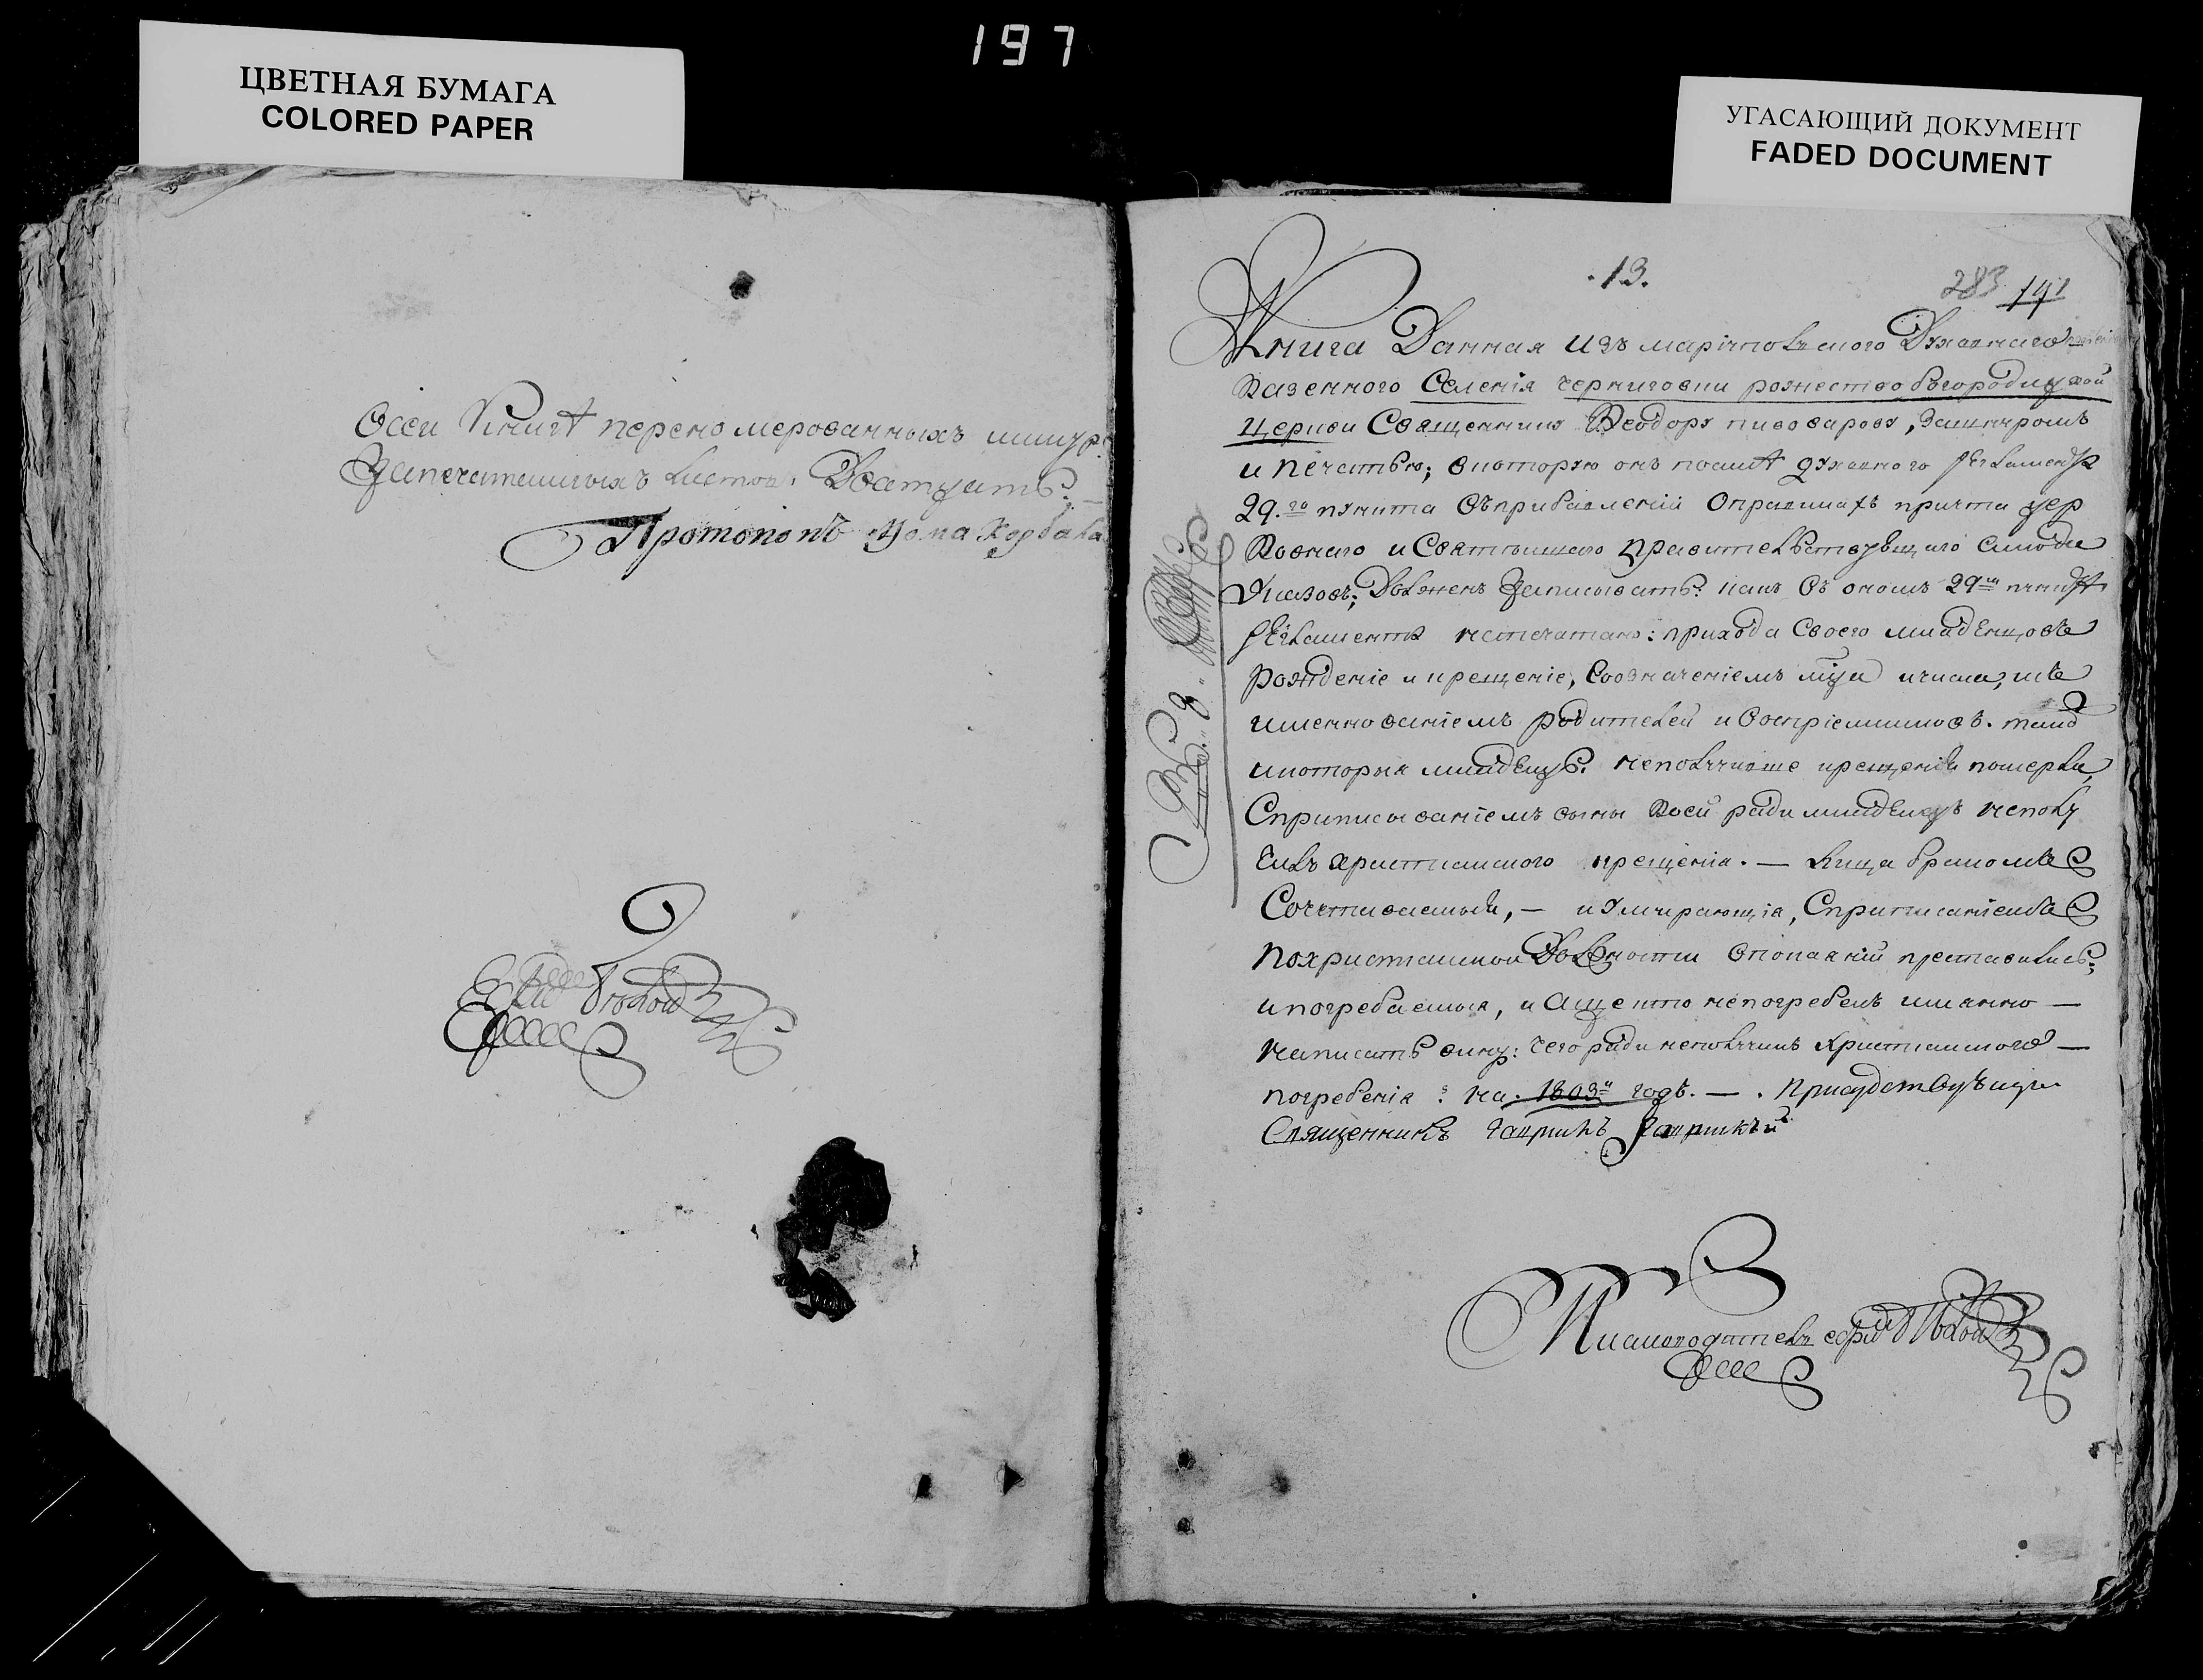 197
ЦВЕТНАЯ БУМАГА
COLORED PAPER
УГАСАЮЩИЙ ДОКУМЕНТ
FADED DOCUMENT
Всей Книгѣ переномерованныхъ
Запечатанныхъ Листовъ Дватцать
Протопопъ Фома
.13.
283 141
Книга Данная Изъ маріупольского Духовнаго
Казенного Селенія черниговки рожество богородицкой
Церкви Священнику Феодору пивоварову, Зашнуромъ
и печатью; вкоторую онъ посилѣ духовного регламента
29.го пункта Съприбавленій Оправилахъ причта цер
ковнаго и Святѣишаго Правительствующаго Синода
Указовъ; Долженъ Записывать: какъ Въ ономъ 29мъ пунктѣ
регламента напечатано: прихода Своего младенцовъ
рожденіе и крещеніе, Соозначеніемъ мца ичисла, исъ
именованіемъ родителей и Воспріемниковъ. такъ
икоторыя младенцы неполучивше крещенія померли,
Сприписываніемъ вины коей ради младенецъ неполу
чилъ христианского крещенія. — Лица бракомъ
Сочетаваемыя, — и Умирающія, Сприписаніемъ
Похристианской Должности впокаяній преставились;
ипогребаемыя, и Аще кто непогребенъ имянно —
написать вину: чего ради неполучилъ Христианского —
погребенія: на. 1803й годъ. — . Присудствующи
Священникъ Гавриилъ
Писмоводитель